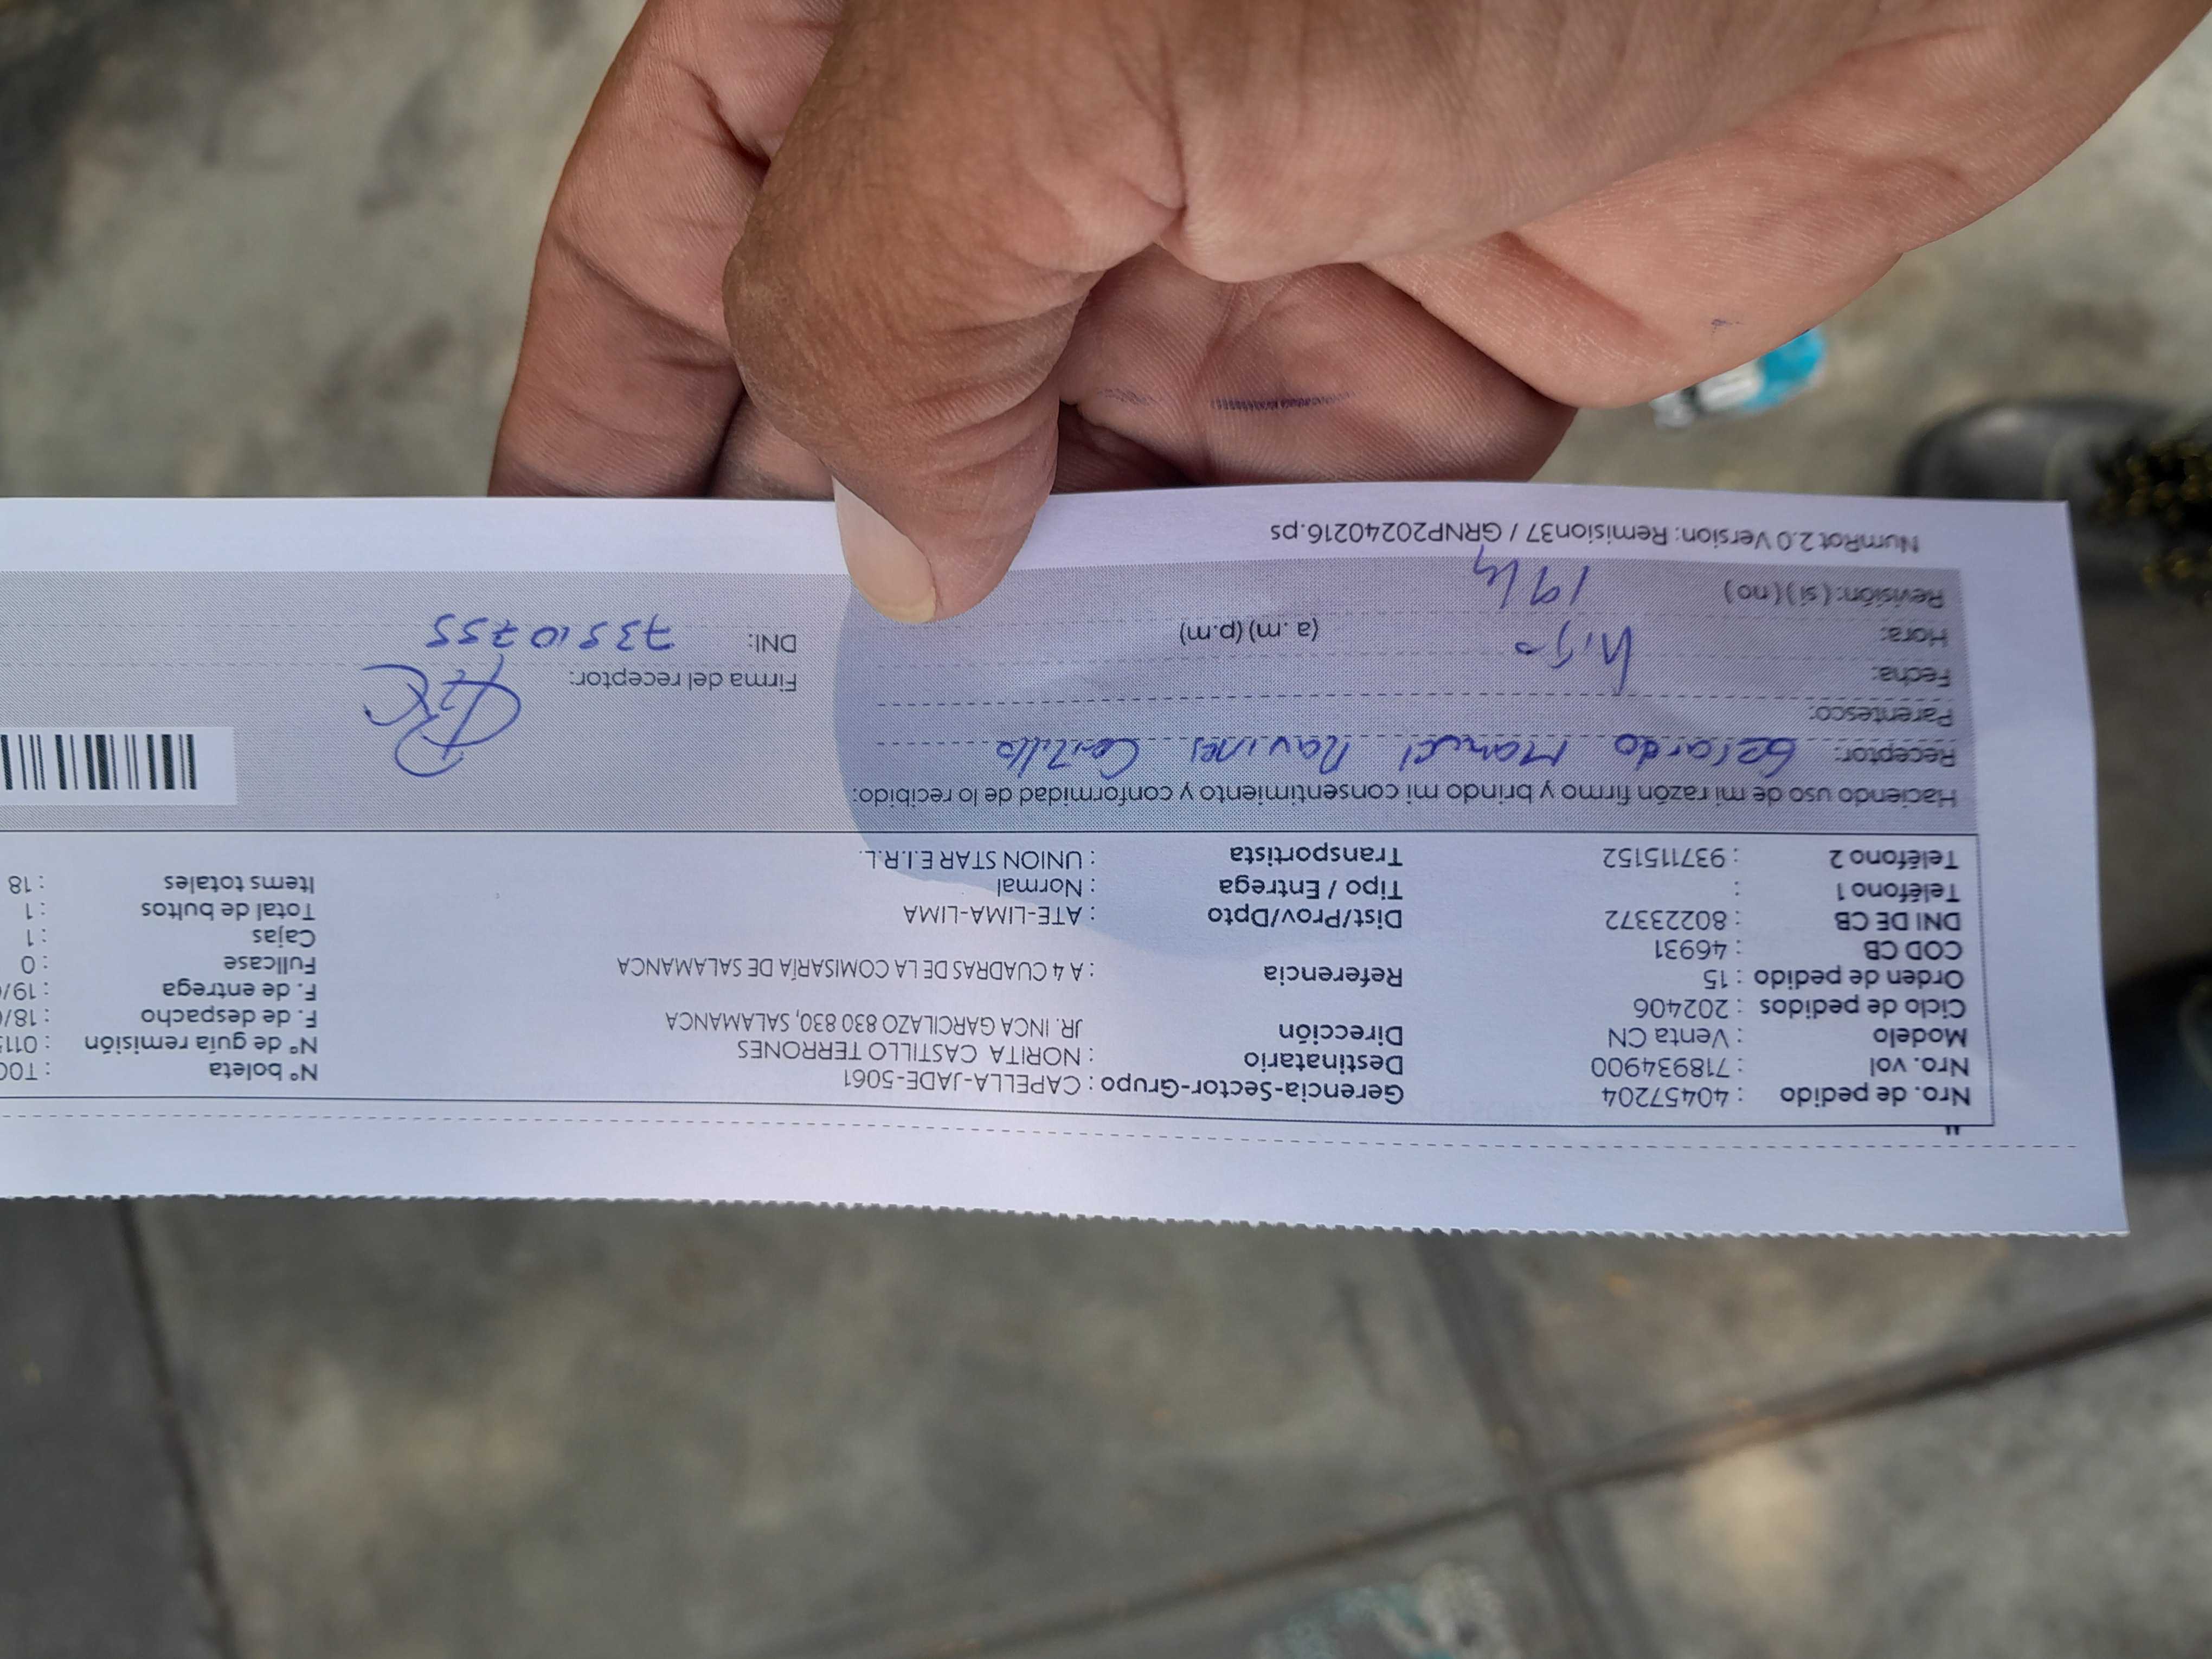 Nro. de pedido : 40457204 Gerencia-Sector-Grupo : CAPELLA-JADE-5061 N° boleta : T00
Nro. vol : 718934900 Destinatario : NORITA CASTILLO TERRONES N° de guía remisión : 011
Modelo : Venta CN Dirección JR. INCA GARCILAZO 830 830, SALAMANCA F. de despacho : 18/
Ciclo de pedidos : 202406 F. de entrega : 19/
Orden de pedido : 15 Referencia : A 4 CUADRAS DE LA COMISARÍA DE SALAMANCA Fullcase : 0
COD CB : 46931 Cajas : 1
DNI DE CB : 80223372 Dist/Prov/Dpto : ATE-LIMA-LIMA Total de bultos : 1
Teléfono 1 : Tipo / Entrega : Normal Items totales : 18
Teléfono 2 : 937115152 Transportista : UNION STAR E.I.R.L.
Haciendo uso de mi razón firmo y brindo mi consentimiento y conformidad de lo recibido:
Receptor: Gerardo Manuel Navines Castillo
Parentesco:
Fecha: hijo Firma del receptor:
Hora: (a. m) (p.m) DNI: 73510755
Revisión: ( sí ) ( no )
NumRot 2.0 Version: Remision37 / GRNP20240216.ps